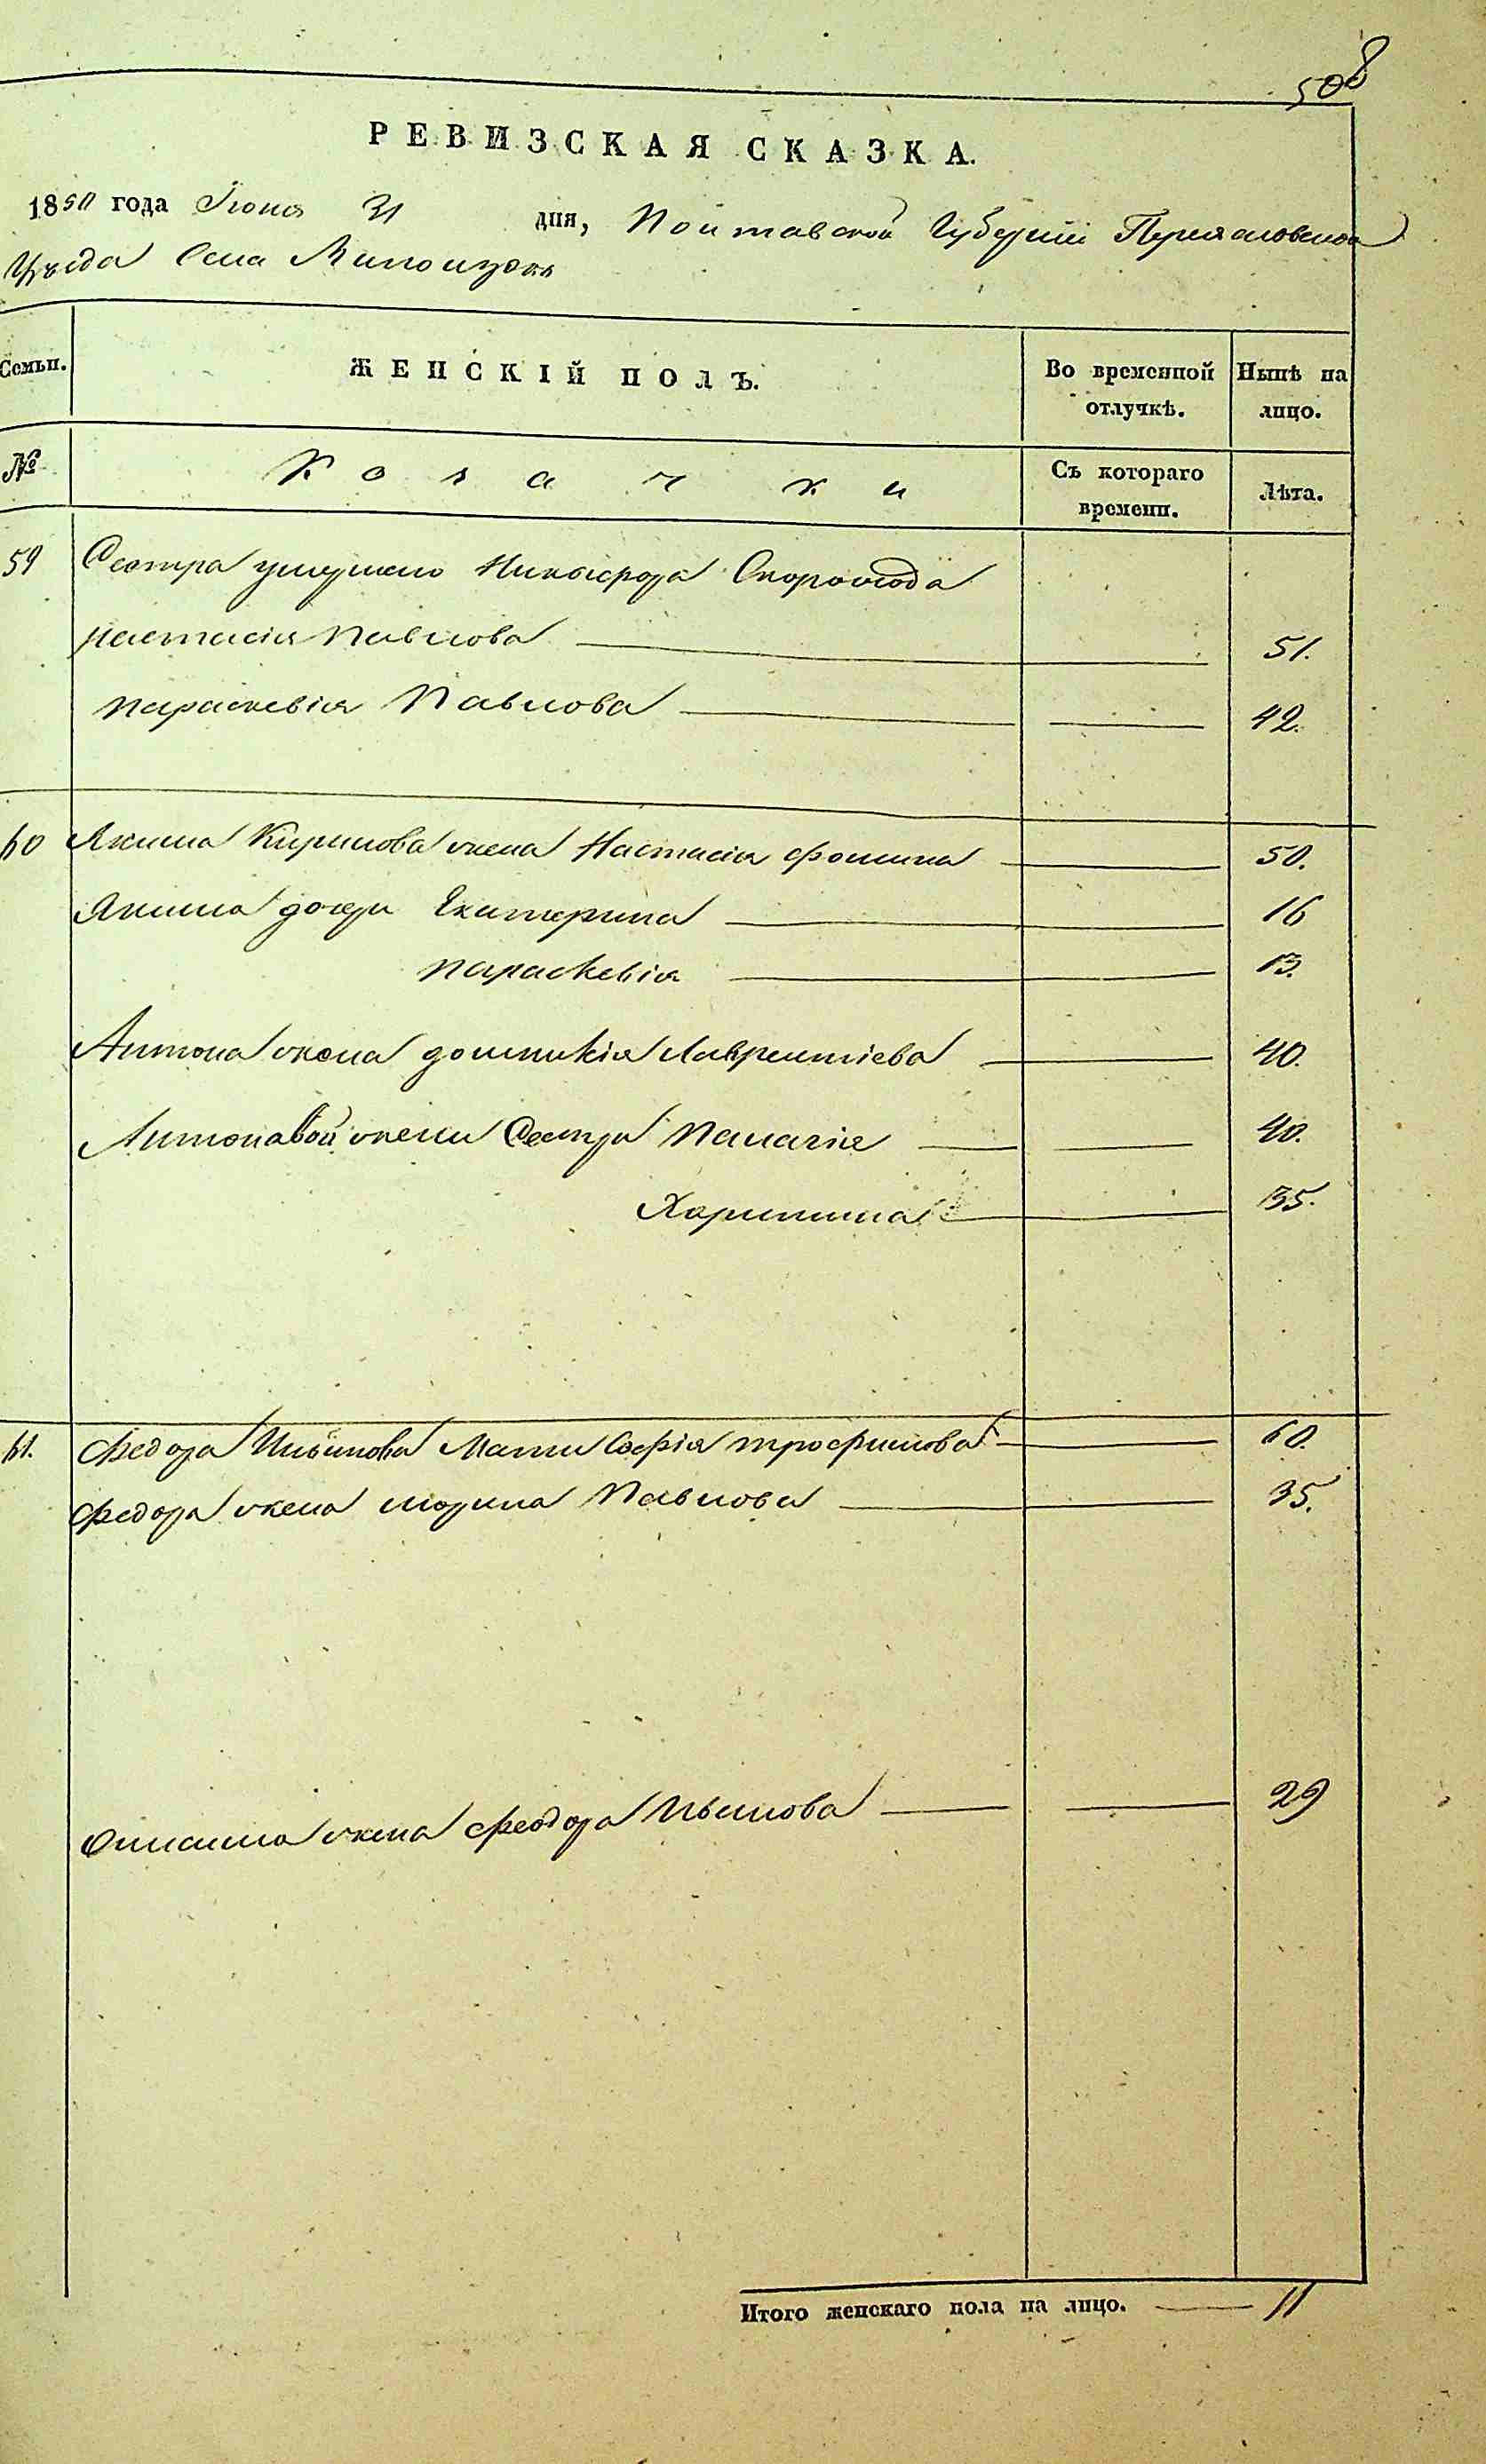 508
РЕВИЗСКАЯ СКАЗКА.
1850 года Июня 31 дня, Полтавской Губерніи Переясловскаго
Уѣзда Села
Семьи. ЖЕНСКІЙ ПОЛЪ. Во временной отлучкѣ. Нынѣ на лицо.
№ Козачки Съ котораго времени. Лѣта.
59 Сестра умершего Никыфора Скорохода
Настасія Павлова 51.
Параскевія Павлова 42.
60 Якима Кирилова жена Настасія Фомина 50.
Якима дочери Екатерина 16
Параскевія 13.
Антона жена Домникія Лаврентіева 40.
Антоновой жены Сестри Палагія 40.
Харитина 35.
61. Федора Ильинова Мати Софія Трофимова 60.
Федора жена Марина Павлова 35.
жена Феодора 29
Итого женскаго пола на лицо. 11